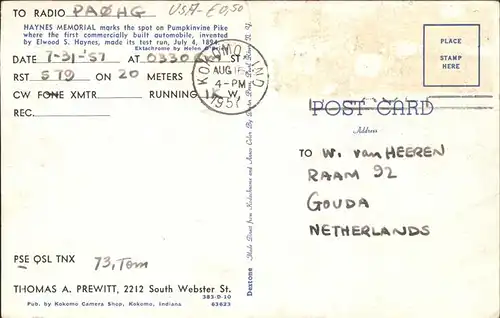 TO RADIO PAØHG USA-£0,50
HAYNES MEMORIAL marks the spot on Pumpkinvine Pike
where the first commercially built automobile, invented
by Elwood S. Haynes, made its test run, July 4, 1894.
Ektachrome by Helen
DATE 7-31-'57 AT 0330 ST
RST 579 ON 20 METERS
CW FONE XMTR. RUNNING 1K W.
REC.
KOKOMO IND
AUG
4-PM
1957
PLACE
STAMP
HERE
POST CARD
Address
TO W. van HEEREN
RAAM 92
GOUDA
NETHERLANDS
PSE QSL TNX 73, Tom
THOMAS A. PREWITT, 2212 South Webster St.
383-D-10
Pub. by Kokomo Camera Shop, Kokomo, Indiana 63623
Dextone Made Direct from Kodachrome and Ansco Color By Dexter Press,